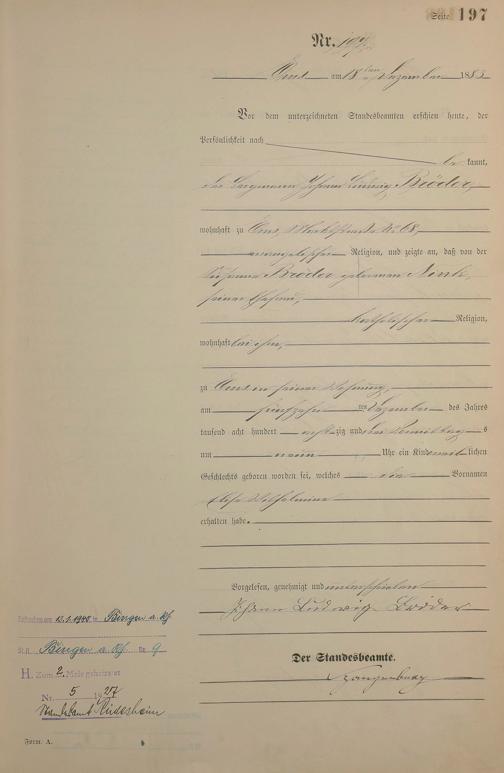 Seite 197
Nr. 197
Ems am 18ten Dezember 1883
Vor dem unterzeichneten Standesbeamten erschien heute, der
Persönlichkeit nach
be kannt,
der Bergmann Johann Ludwig Bröder,
wohnhaft zu Ems, No 68,
evangelischer Religion, und zeigte an, daß von der
Bröder geborenen
seiner Ehefrau,
katholischer Religion,
wohnhaft bei ihm,
zu Ems in seiner Wohnung,
am fünfzehn ten Dezember des Jahres
tausend acht hundert achtzig und drei Vormittags
um neun Uhr ein Kind weiblichen
Geschlechts geboren worden sei, welches die Vornamen
Wilhelmine
erhalten habe.
Vorgelesen, genehmigt und unterschrieben
Johann Ludwig Bröder
Der Standesbeamte.
12.1.1940 in Bingen a. Rh
St.A. Bingen a. Rh Nr. 9
H. Zum 2. Male geheiratet
Nr. 5 1927
Standesamt Rüdesheim
Form. A.